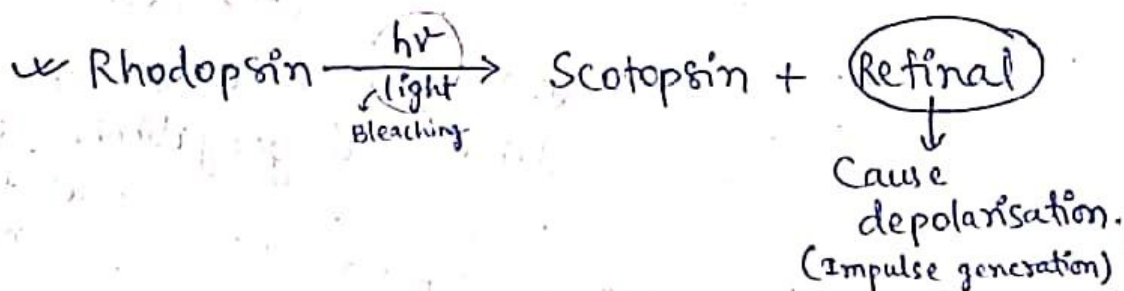 Rhodopsin hν light → Scotopsin + Retinal
Bleaching
↓
Cause
depolarisation.
(Impulse generation)